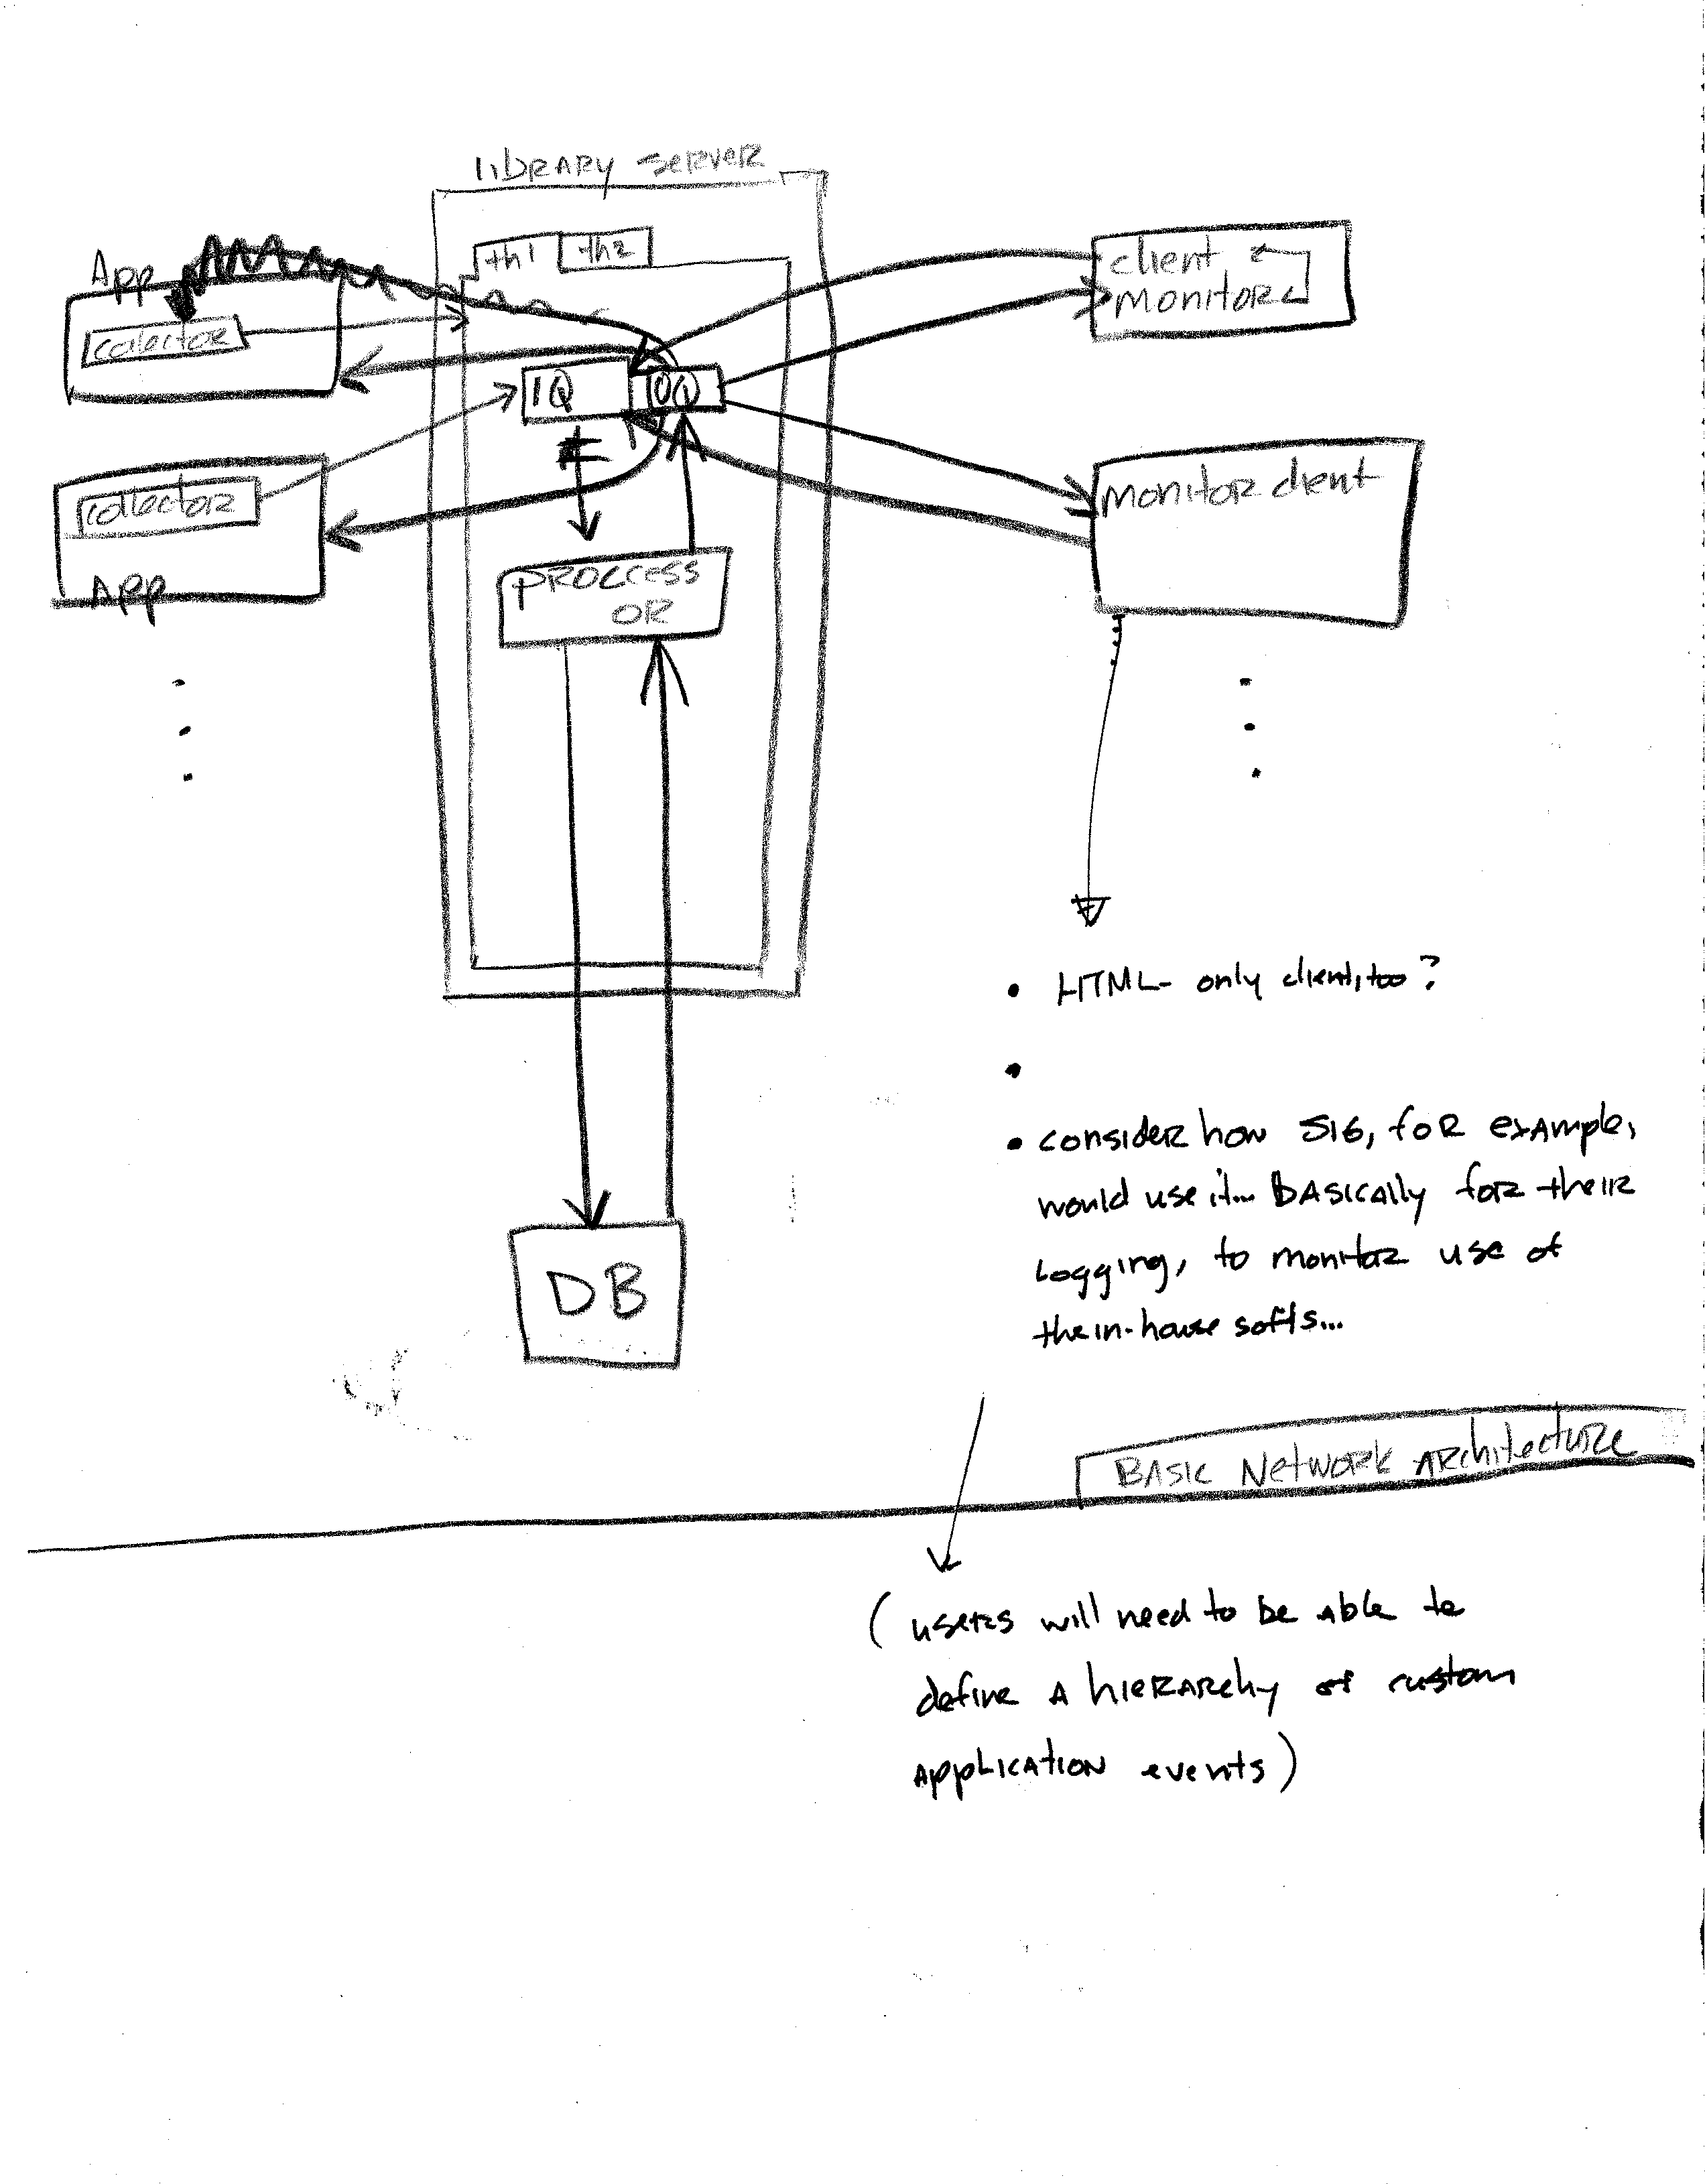 library server
th1 th2
App
collector
IQ OQ
client
monitor
collector
App
monitor client
PROCCESS
OR
DB
• HTML-only client, too?
•
• consider how SIG, for example,
would use it... Basically for their
logging, to monitor use of
their in-house softs...
Basic Network Architecture
(users will need to be able to
define a hierarchy of custom
application events)